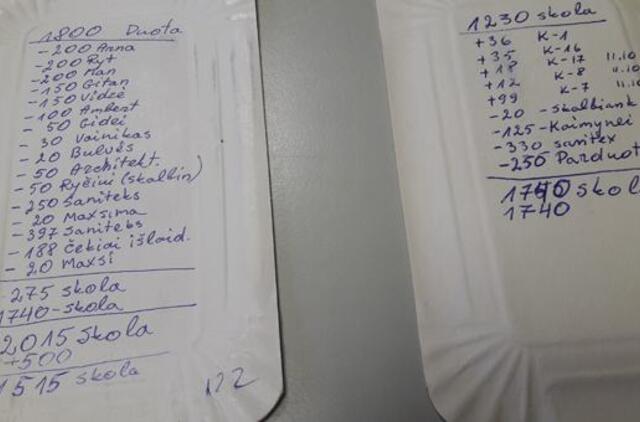 1800 Duota
-200 Anna
-200 Ryt
-200 Man
-150 Gitan
-150 Vidzė
-100 Ambert
- 50 Gidei
- 30 Vainikas
- 20 Bulvės
- 50 Architekt.
- 50 Ryčiui (skalbin)
-250 Saniteks
- 20 Maxsima
-397 Saniteks
-188 Čekiai išlaid.
- 20 Maxsi
-275 skola
1740-skola
2015 skola
+500
1515 skola
122
1230 skola
+36 K-1
+35 K-16
+18 K-17 11.10
+12 K-8 11.10
+99 K-7 11.10
-20 - skalbiank
-125-Kaimynei
-330 sanitex
-250 Parduot
1740 skol
1740